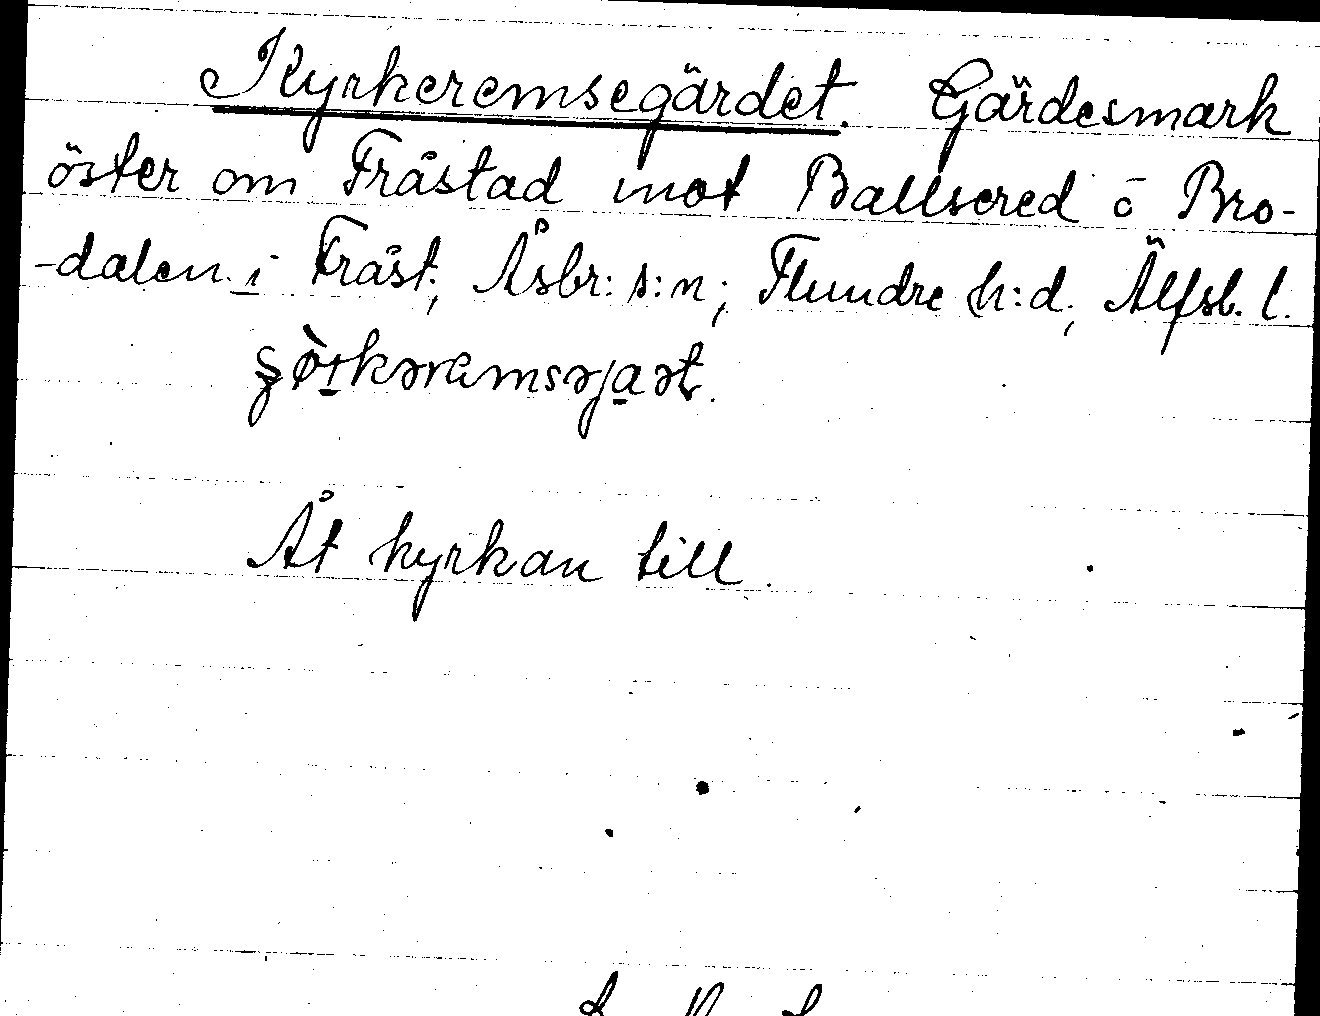 Kyrkeremsegärdet. Gärdesmark
öster om Fråstad mot Ballsered ō Bro-
-dalen i Fråst., Åsbr: s:n; Flundre h:d, Älfsb. l.
Åt kyrkan till.